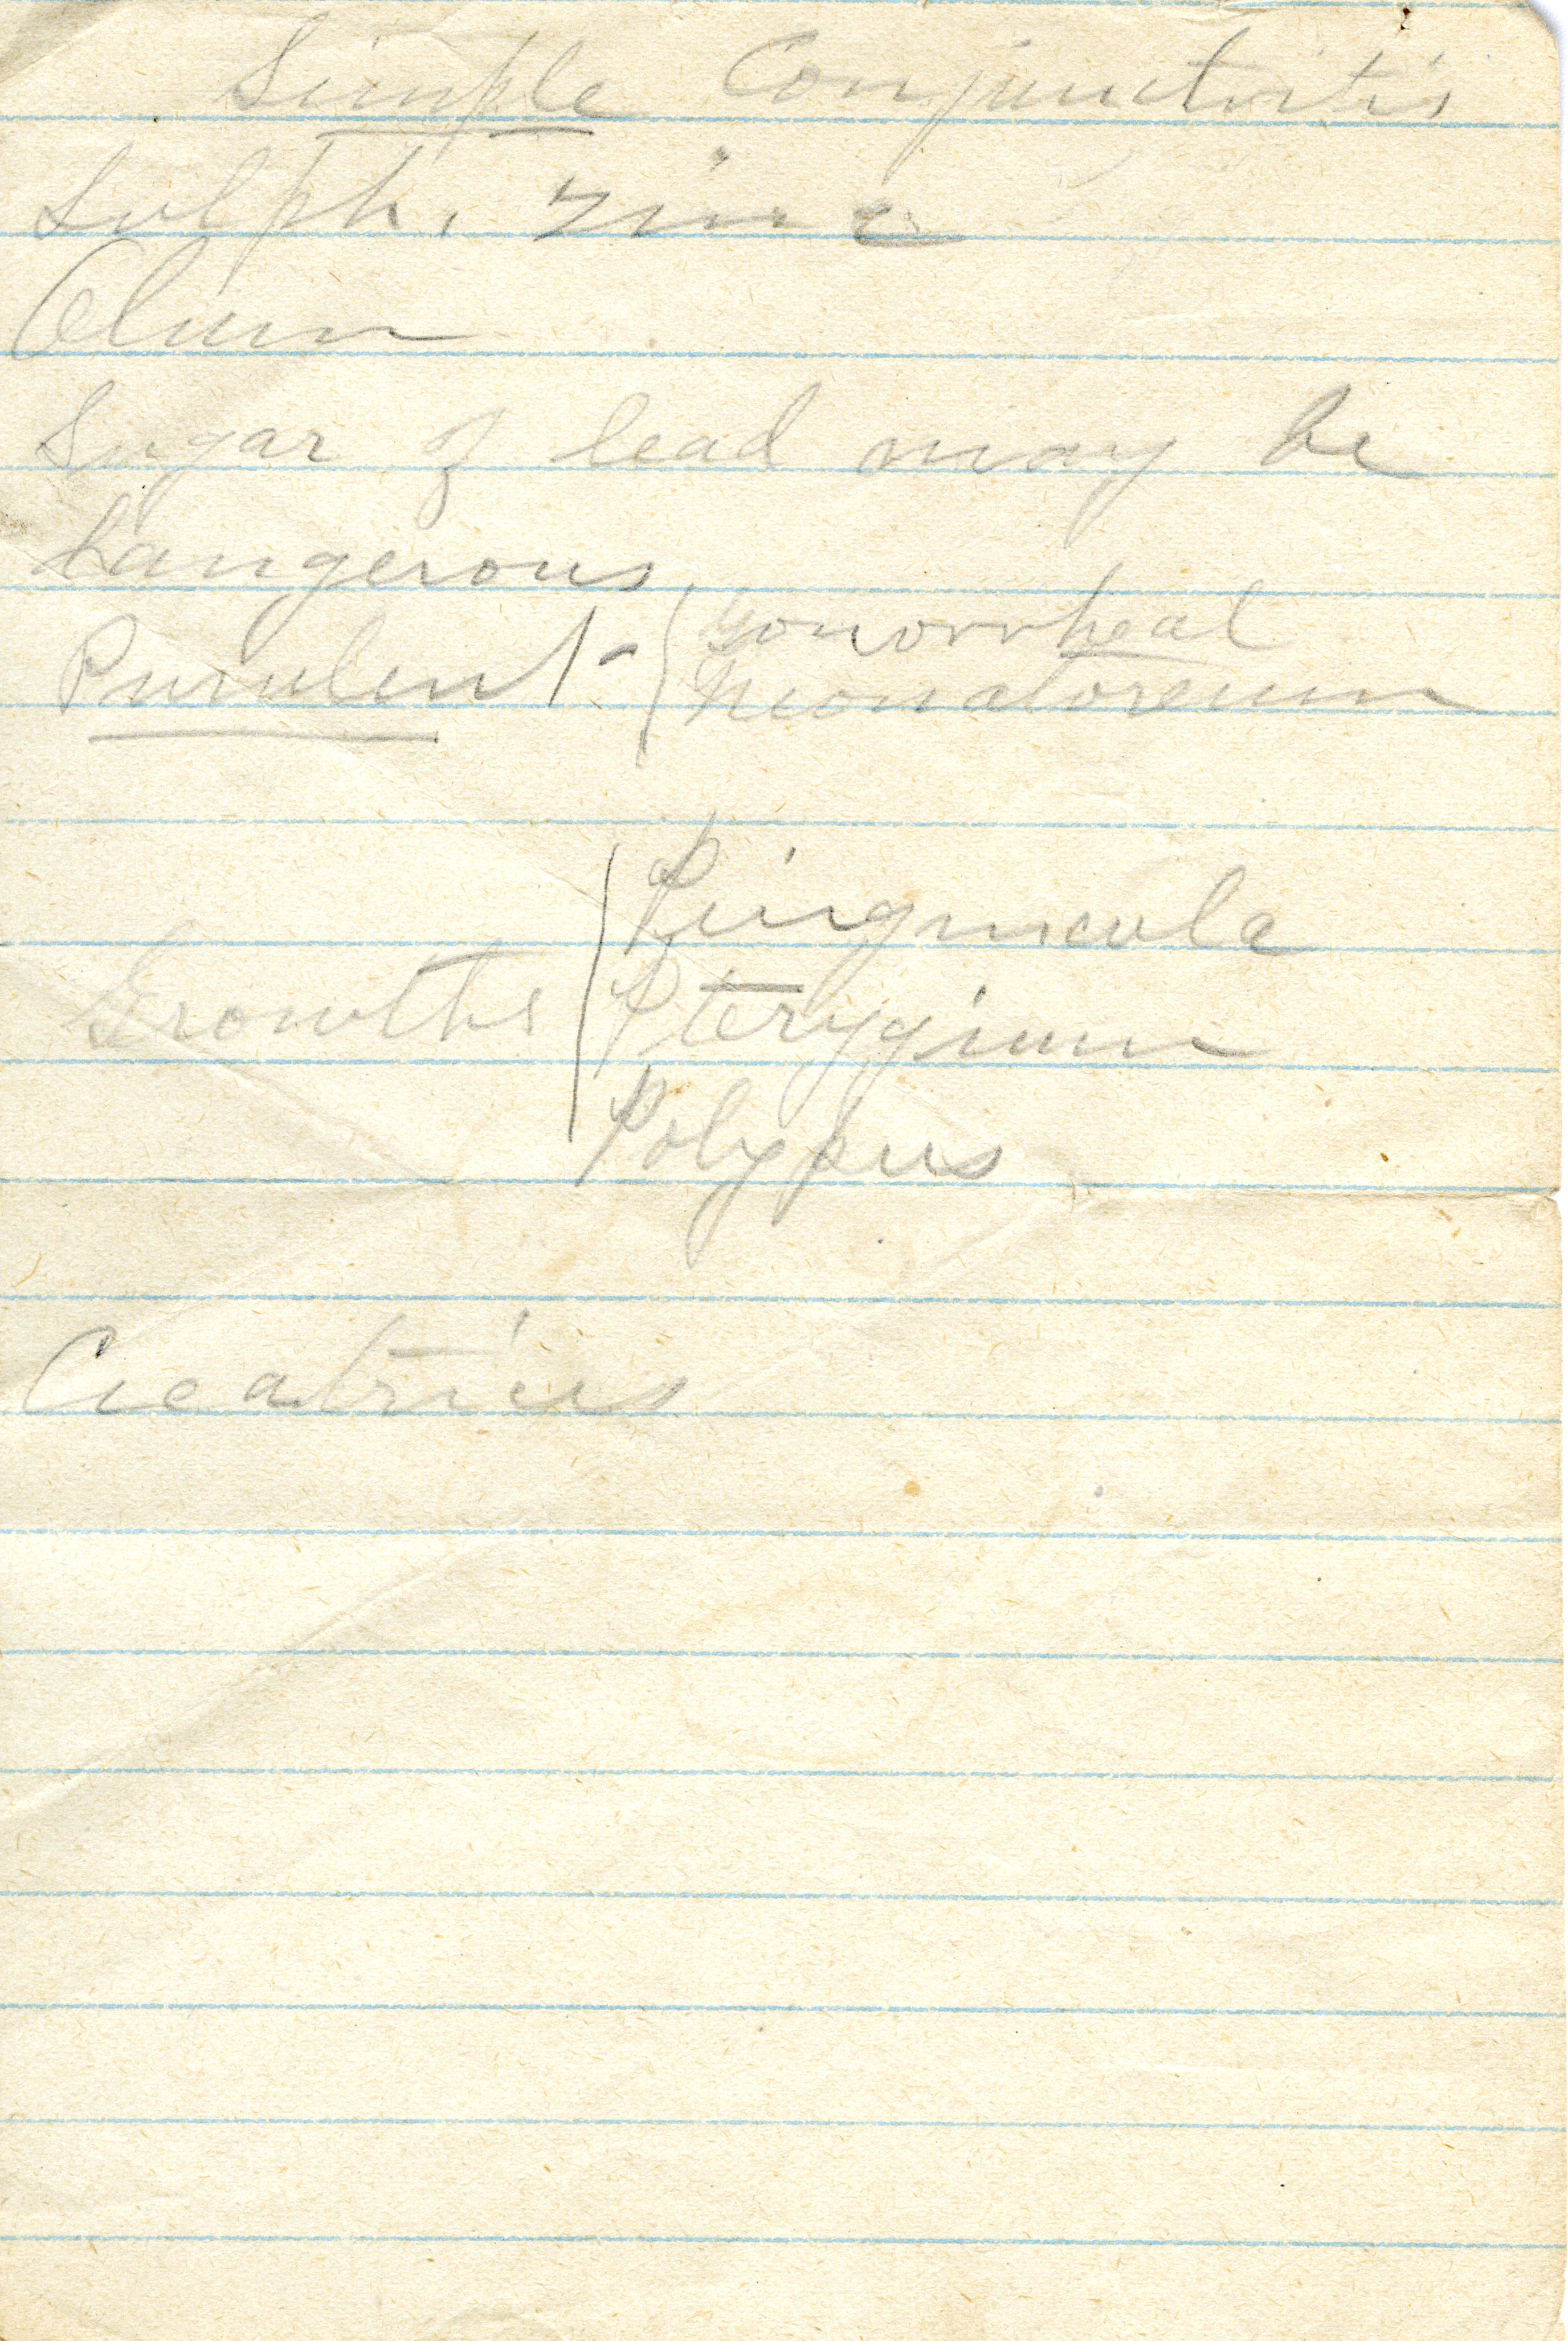 Simple Conjunctivitis
Sulph. zinc
Alum
Sugar of lead may be
dangerous
Purulent - { Gonorrheal
Neonatoreum
Pinguicula
Growths { Pterygium
Polypus
Cicatrices